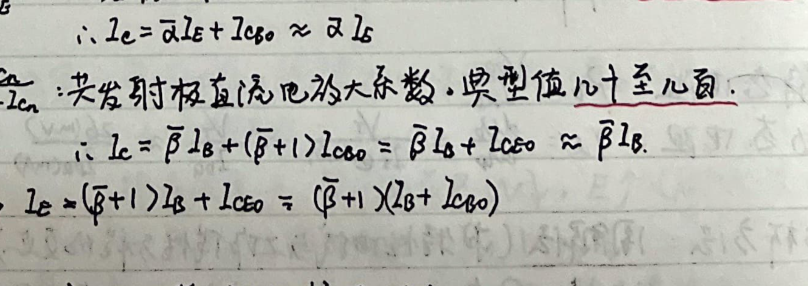 ∴ I_C = ᾱI_E + I_CBO ≈ ᾱI_E
I_Cn : 共发射极直流电流放大系数.典型值几十至几百.
∴ I_C = β̄I_B + (β̄+1)I_CBO = β̄I_B + I_CEO ≈ β̄I_B.
I_E = (β̄+1)I_B + I_CEO = (β̄+1)(I_B + I_CBO)